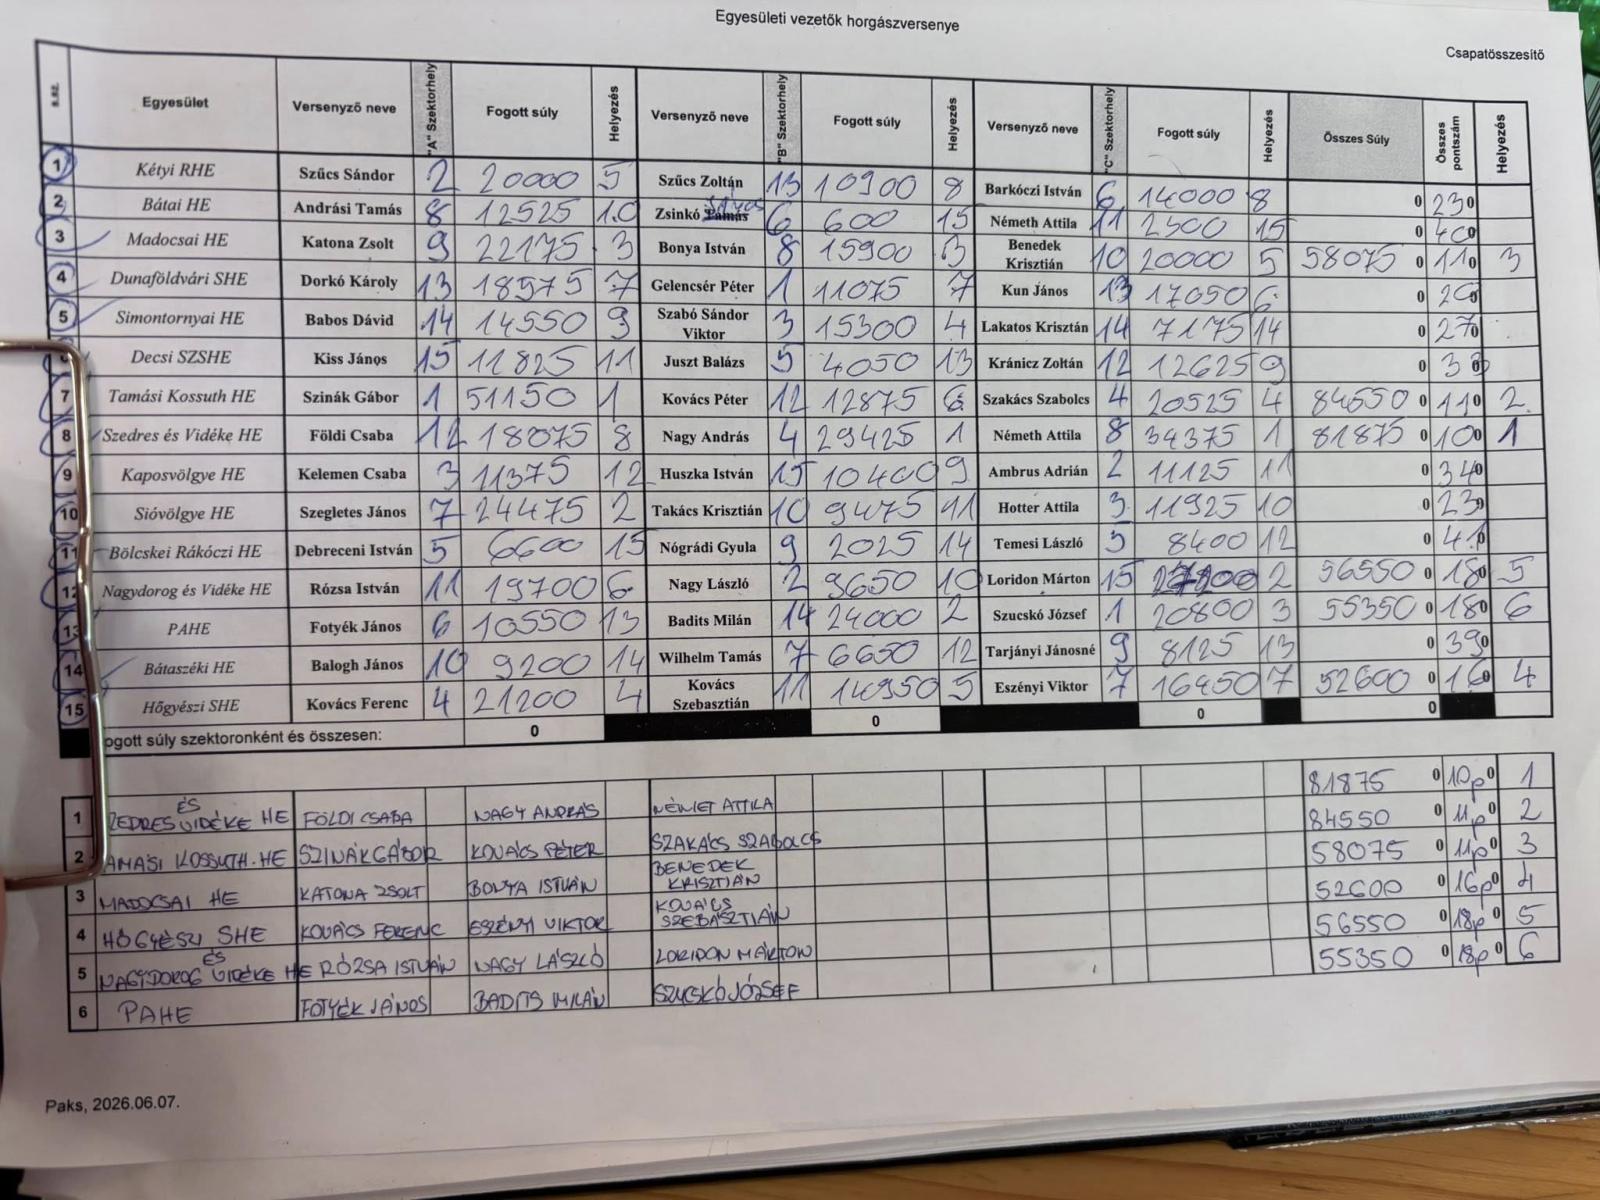 Egyesületi vezetők horgászversenye
Csapatösszesítő
Egyesület Versenyző neve "A" Szektorhely Fogott súly Helyezés Versenyző neve "B" Szektorhely Fogott súly Helyezés Versenyző neve "C" Szektorhely Fogott súly Helyezés Összes Súly Összes pontszám Helyezés
1 Kétyi RHE Szűcs Sándor 2 20000 5 Szűcs Zoltán 13 10900 8 Barkóczi István 6 14000 8 0 23 0
2 Bátai HE Andrási Tamás 8 12525 10 Zsinkó 6 600 15 Németh Attila 11 2500 15 0 40 0
3 Madocsai HE Katona Zsolt 9 22175 3 Bonya István 8 15900 3 Benedek Krisztián 10 20000 5 58075 0 11 0 3
4 Dunaföldvári SHE Dorkó Károly 13 18575 7 Gelencsér Péter 1 11075 7 Kun János 13 17050 6 0 20 0
5 Simontornyai HE Babos Dávid 14 14550 9 Szabó Sándor Viktor 3 15300 4 Lakatos Krisztán 14 7175 14 0 27 0
6 Decsi SZSHE Kiss János 15 11825 11 Juszt Balázs 5 4050 13 Kránicz Zoltán 12 12625 9 0 33 0
7 Tamási Kossuth HE Szinák Gábor 1 51150 1 Kovács Péter 12 12875 6 Szakács Szabolcs 4 20525 4 84550 0 11 0 2
8 Szedres és Vidéke HE Földi Csaba 12 18075 8 Nagy András 4 29425 1 Németh Attila 8 34375 1 81875 0 10 0 1
9 Kaposvölgye HE Kelemen Csaba 3 11375 12 Huszka István 15 10400 9 Ambrus Adrián 2 11125 11 0 34 0
10 Sióvölgye HE Szegletes János 7 24475 2 Takács Krisztián 10 9475 11 Hotter Attila 3 11925 10 0 23 0
11 Bölcskei Rákóczi HE Debreceni István 5 6600 15 Nógrádi Gyula 9 2025 14 Temesi László 5 8400 12 0 41 0
12 Nagydorog és Vidéke HE Rózsa István 11 19700 6 Nagy László 2 9650 10 Loridon Márton 15 2 56550 0 18 0 5
13 PAHE Fotyék János 6 10550 13 Badits Milán 14 24000 2 Szucskó József 1 20800 3 55350 0 18 0 6
14 Bátaszéki HE Balogh János 10 9200 14 Wilhelm Tamás 7 6650 12 Tarjányi Jánosné 9 8125 13 0 39 0
15 Hőgyészi SHE Kovács Ferenc 4 21200 4 Kovács Szebasztián 11 14950 5 Eszényi Viktor 7 16450 7 52600 0 16 0 4
ogott súly szektoronként és összesen: 0 0 0 0
1 ZEDRES ÉS VIDÉKE HE FÖLDI CSABA NAGY ANDRÁS NÉMET ATTILA 81875 0 10p 0 1
2 AMÁSI KOSSUTH HE SZINÁK GÁBOR KOVÁCS PÉTER SZAKÁCS SZABOLCS 84550 0 11p 0 2
3 MADOCSAI HE KATONA ZSOLT BONYA ISTVÁN BENEDEK KRISZTIÁN 58075 0 11p 0 3
4 HŐGYÉSZI SHE KOVÁCS FERENC ESZÉNYI VIKTOR KOVÁCS SZEBASZTIÁN 52600 0 16p 0 4
5 NAGYDOROG ÉS VIDÉKE HE RÓZSA ISTVÁN NAGY LÁSZLÓ LORIDON MÁRTON 56550 0 18p 0 5
6 PAHE FOTYÉK JÁNOS BADITS MILÁN SZUCSKÓ JÓZSEF 55350 0 18p 0 6
Paks, 2026.06.07.